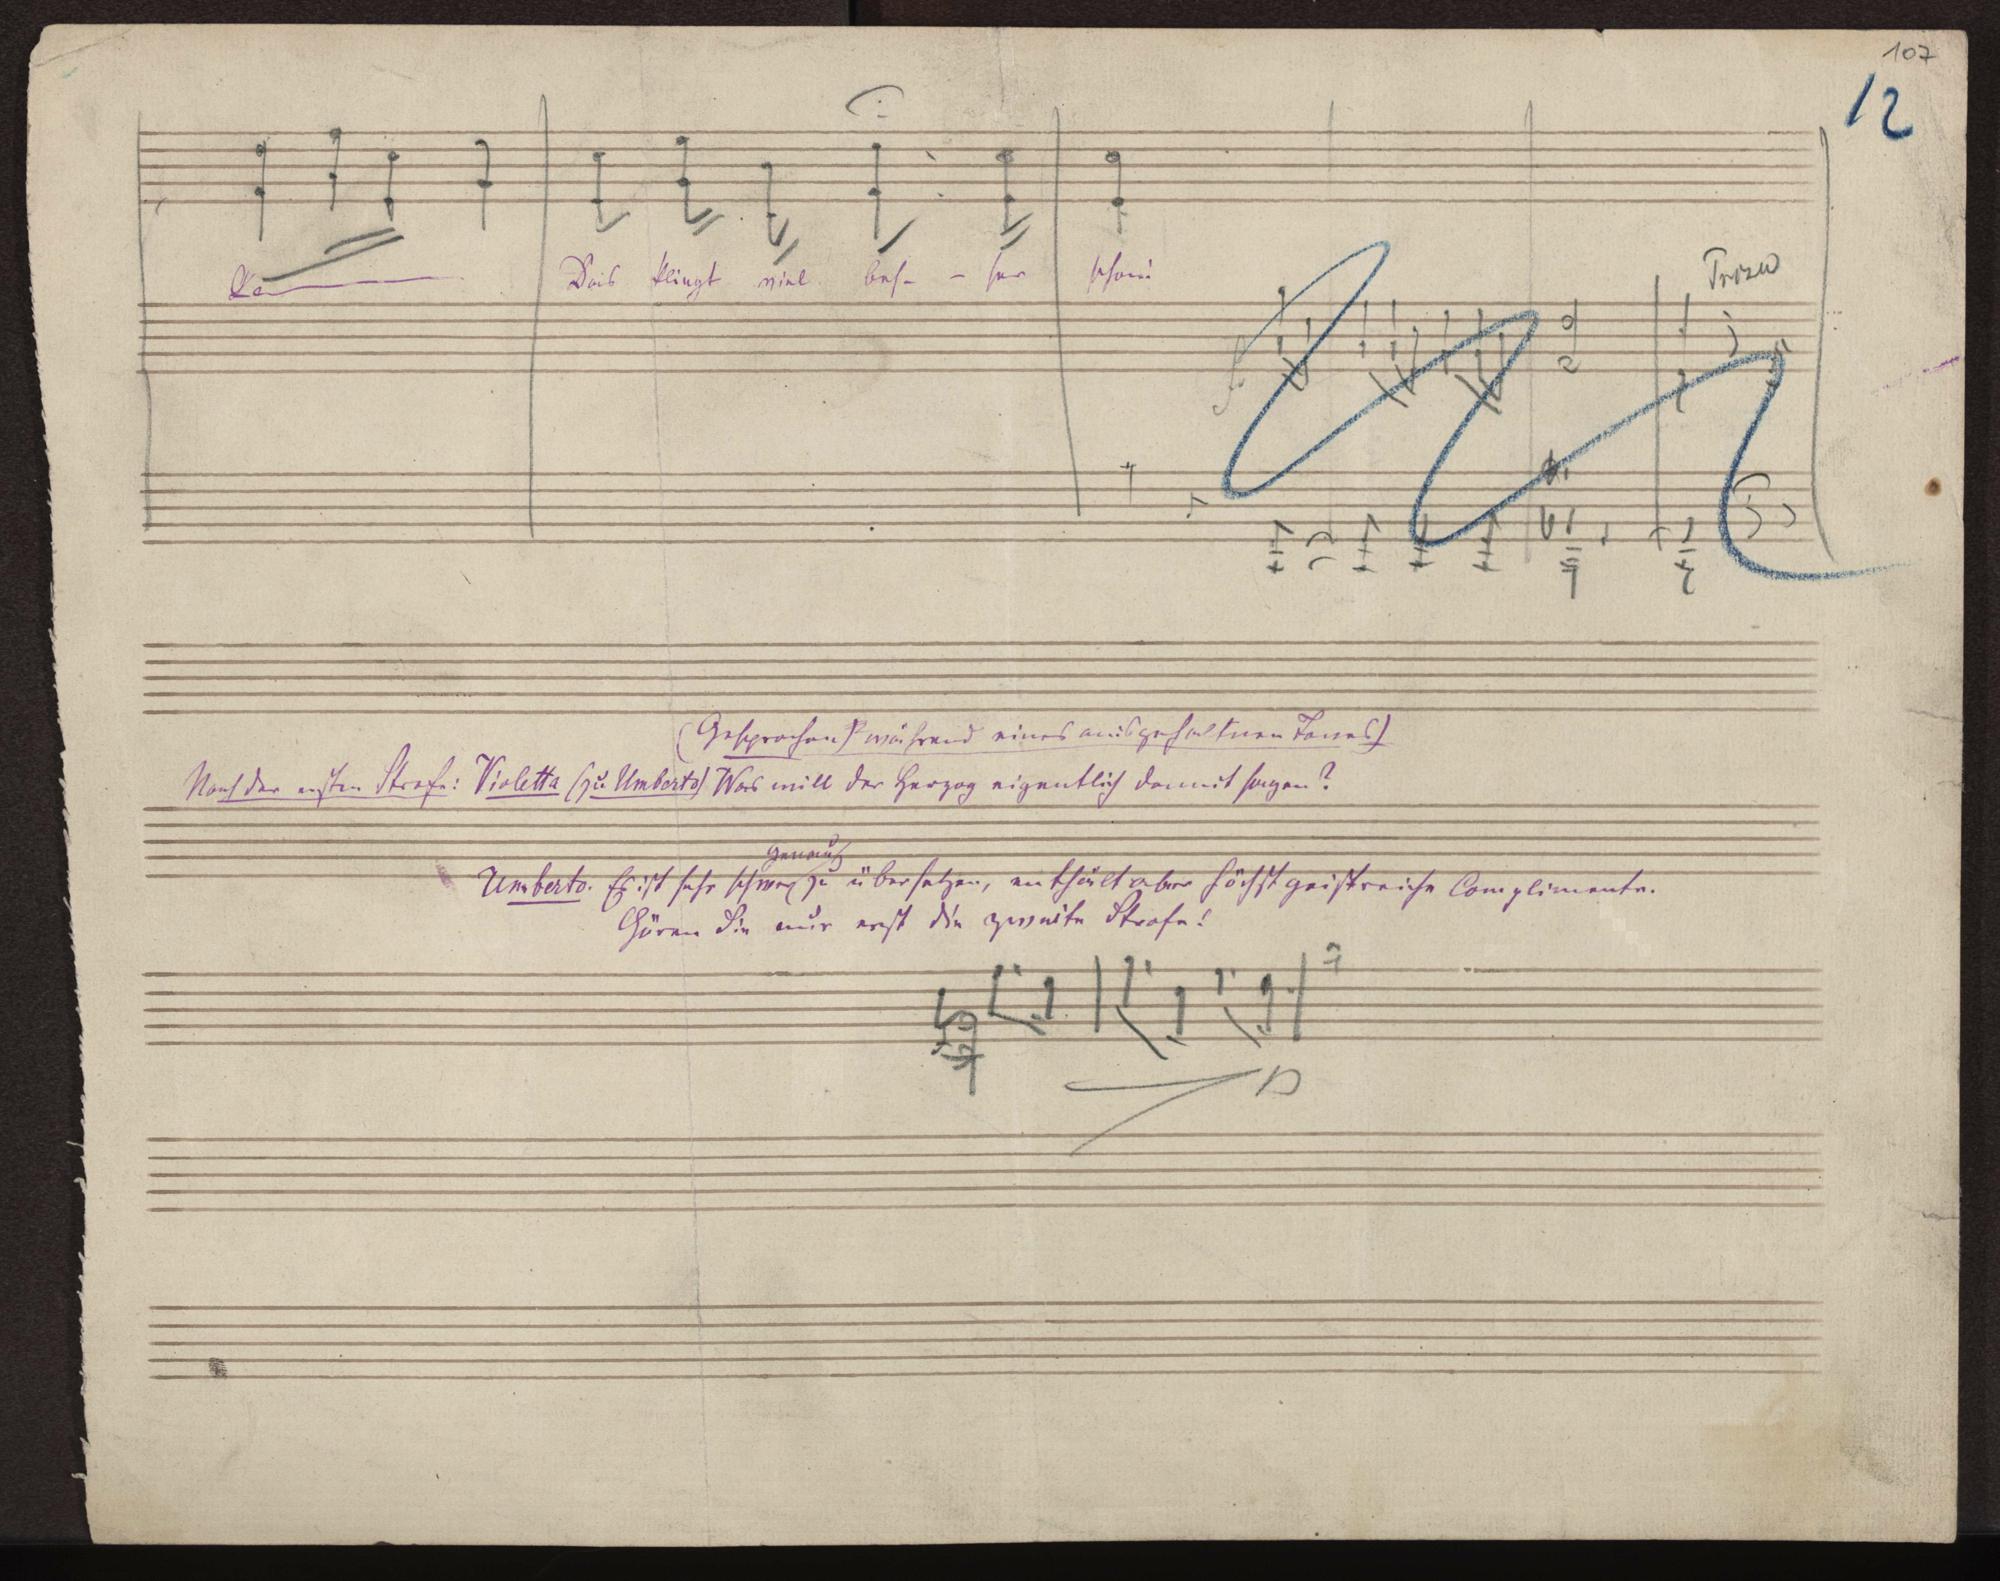 107
12
La
Das klingt viel bes- - ser schon!
(Gesprochen während eines ausgehaltnen Tones)
Nach der ersten Strofe: Violetta (zu Umberto) Was will der Herzog eigentlich damit sagen?
genau
Umberto. Es ist sehr schwer zu übersetzen, enthält aber höchst geistreiche Complimente.
Hören Sie nur erst die zweite Strofe!